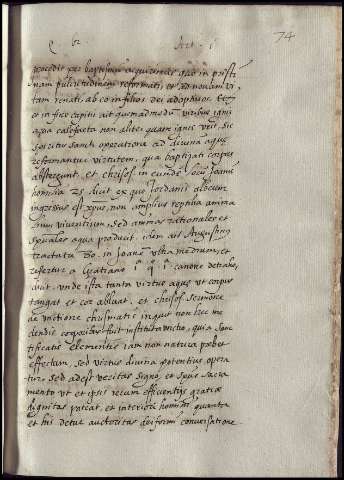 q 62. Art. 1 74
procedit per baptismum acquirentes quo in pristi
nam pulcritudinem reformati et ad novam vi
tam renati, ab eo in filios dei adoptivos. Et
et in fine capitis ait quemadmodum viribus ignis
aqua calefacta non aliter quam ignis urit, sic
spiritus sancti operatione ad divina aqua
reformantur virtutem, qua baptizati corpus
abstergunt, et chrisos. in eundem locum Joanis
homilia 25 dicit ex quo Jordanis alveum
ingressus est xpus, non amplius reptilia anima
rum viventium, sed animas rationales et
sp̃uales aqua producit. idem ait Augustinus
tractatu 80. in Joanem ultra medium, et
refertur a Gratiano 1ª q. 1ª canone detrahe,
ait, unde ista tanta virtus aquæ ut corpus
tangat et cor abluat. et chrisos. sermone
de unctione chrismatis inquit non hec me
dendis corporibus fuit instituta unctio, quia san
tificatis elementis iam non natura prebet
effectum, sed virtus divina potentius opera
tur sed adest veritas signo, et sp̃us sacra
mento ut et ipsis rerum efficientijs gratiæ
dignitas pateat, et interiori homini quanta
et his detur auctoritas deiformi conversatione.